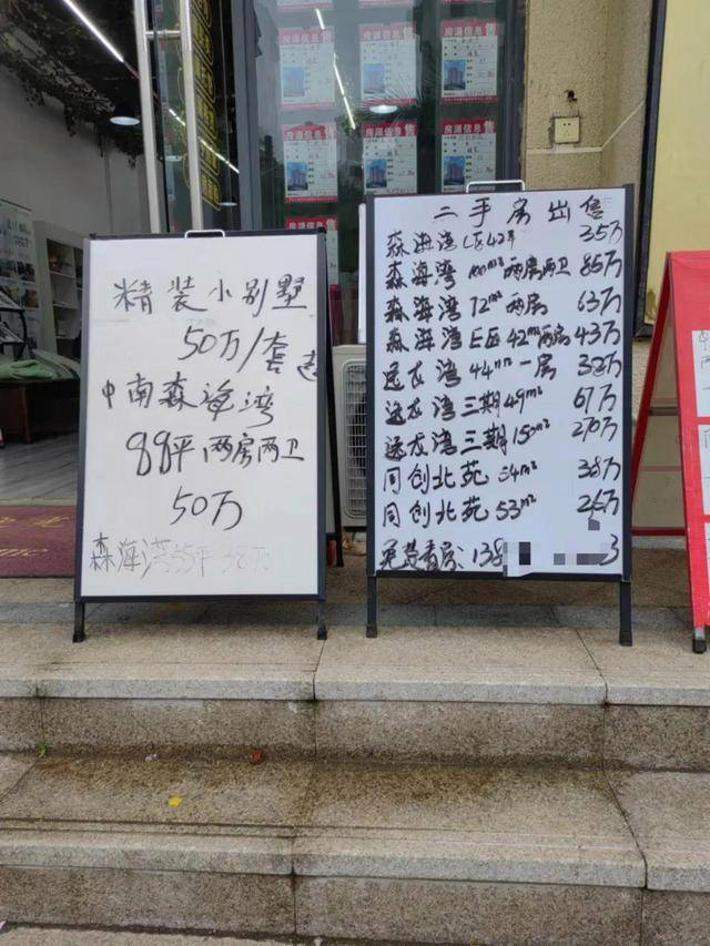 精装小别墅
50万/套起
中南森海湾
88平两房两卫
50万
森海湾55平 38万
二手房出售
森海湾 LG42平 35万
森海湾 100m² 两房两卫 85万
森海湾 72m² 两房 63万
森海湾 E区 42m² 两房 43万
远友湾 44m² 一房 38万
远友湾三期 49m² 67万
远友湾三期 150m² 270万
同创北苑 54m² 38万
同创北苑 53m² 26万
免费看房、138 3
房源信息 售
房源信息 售
房源信息 售
房源信息 售